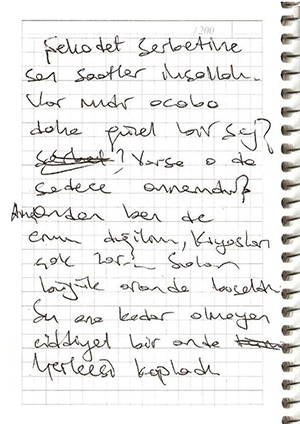 1200
Şehadet Şerbetine
son saatler inşallah.
Var mıdır acaba
daha güzel bir şey?
Varsa o da
sadece annemdir?
Ama ondan ben de
emin değilim, Kıyasları
çok zor?
büyük oranda boşaldı.
Şu ana kadar olmayan
ciddiyet bir anda
Herkesi kapladı